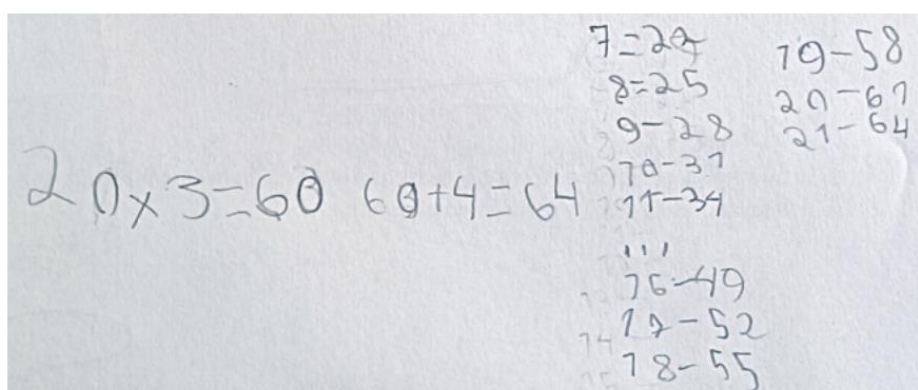 20×3=60 60+4=64
7=22
8=25
9-28
10-31
11-34
...
16-49
17-52
18-55
19-58
20-61
21-64